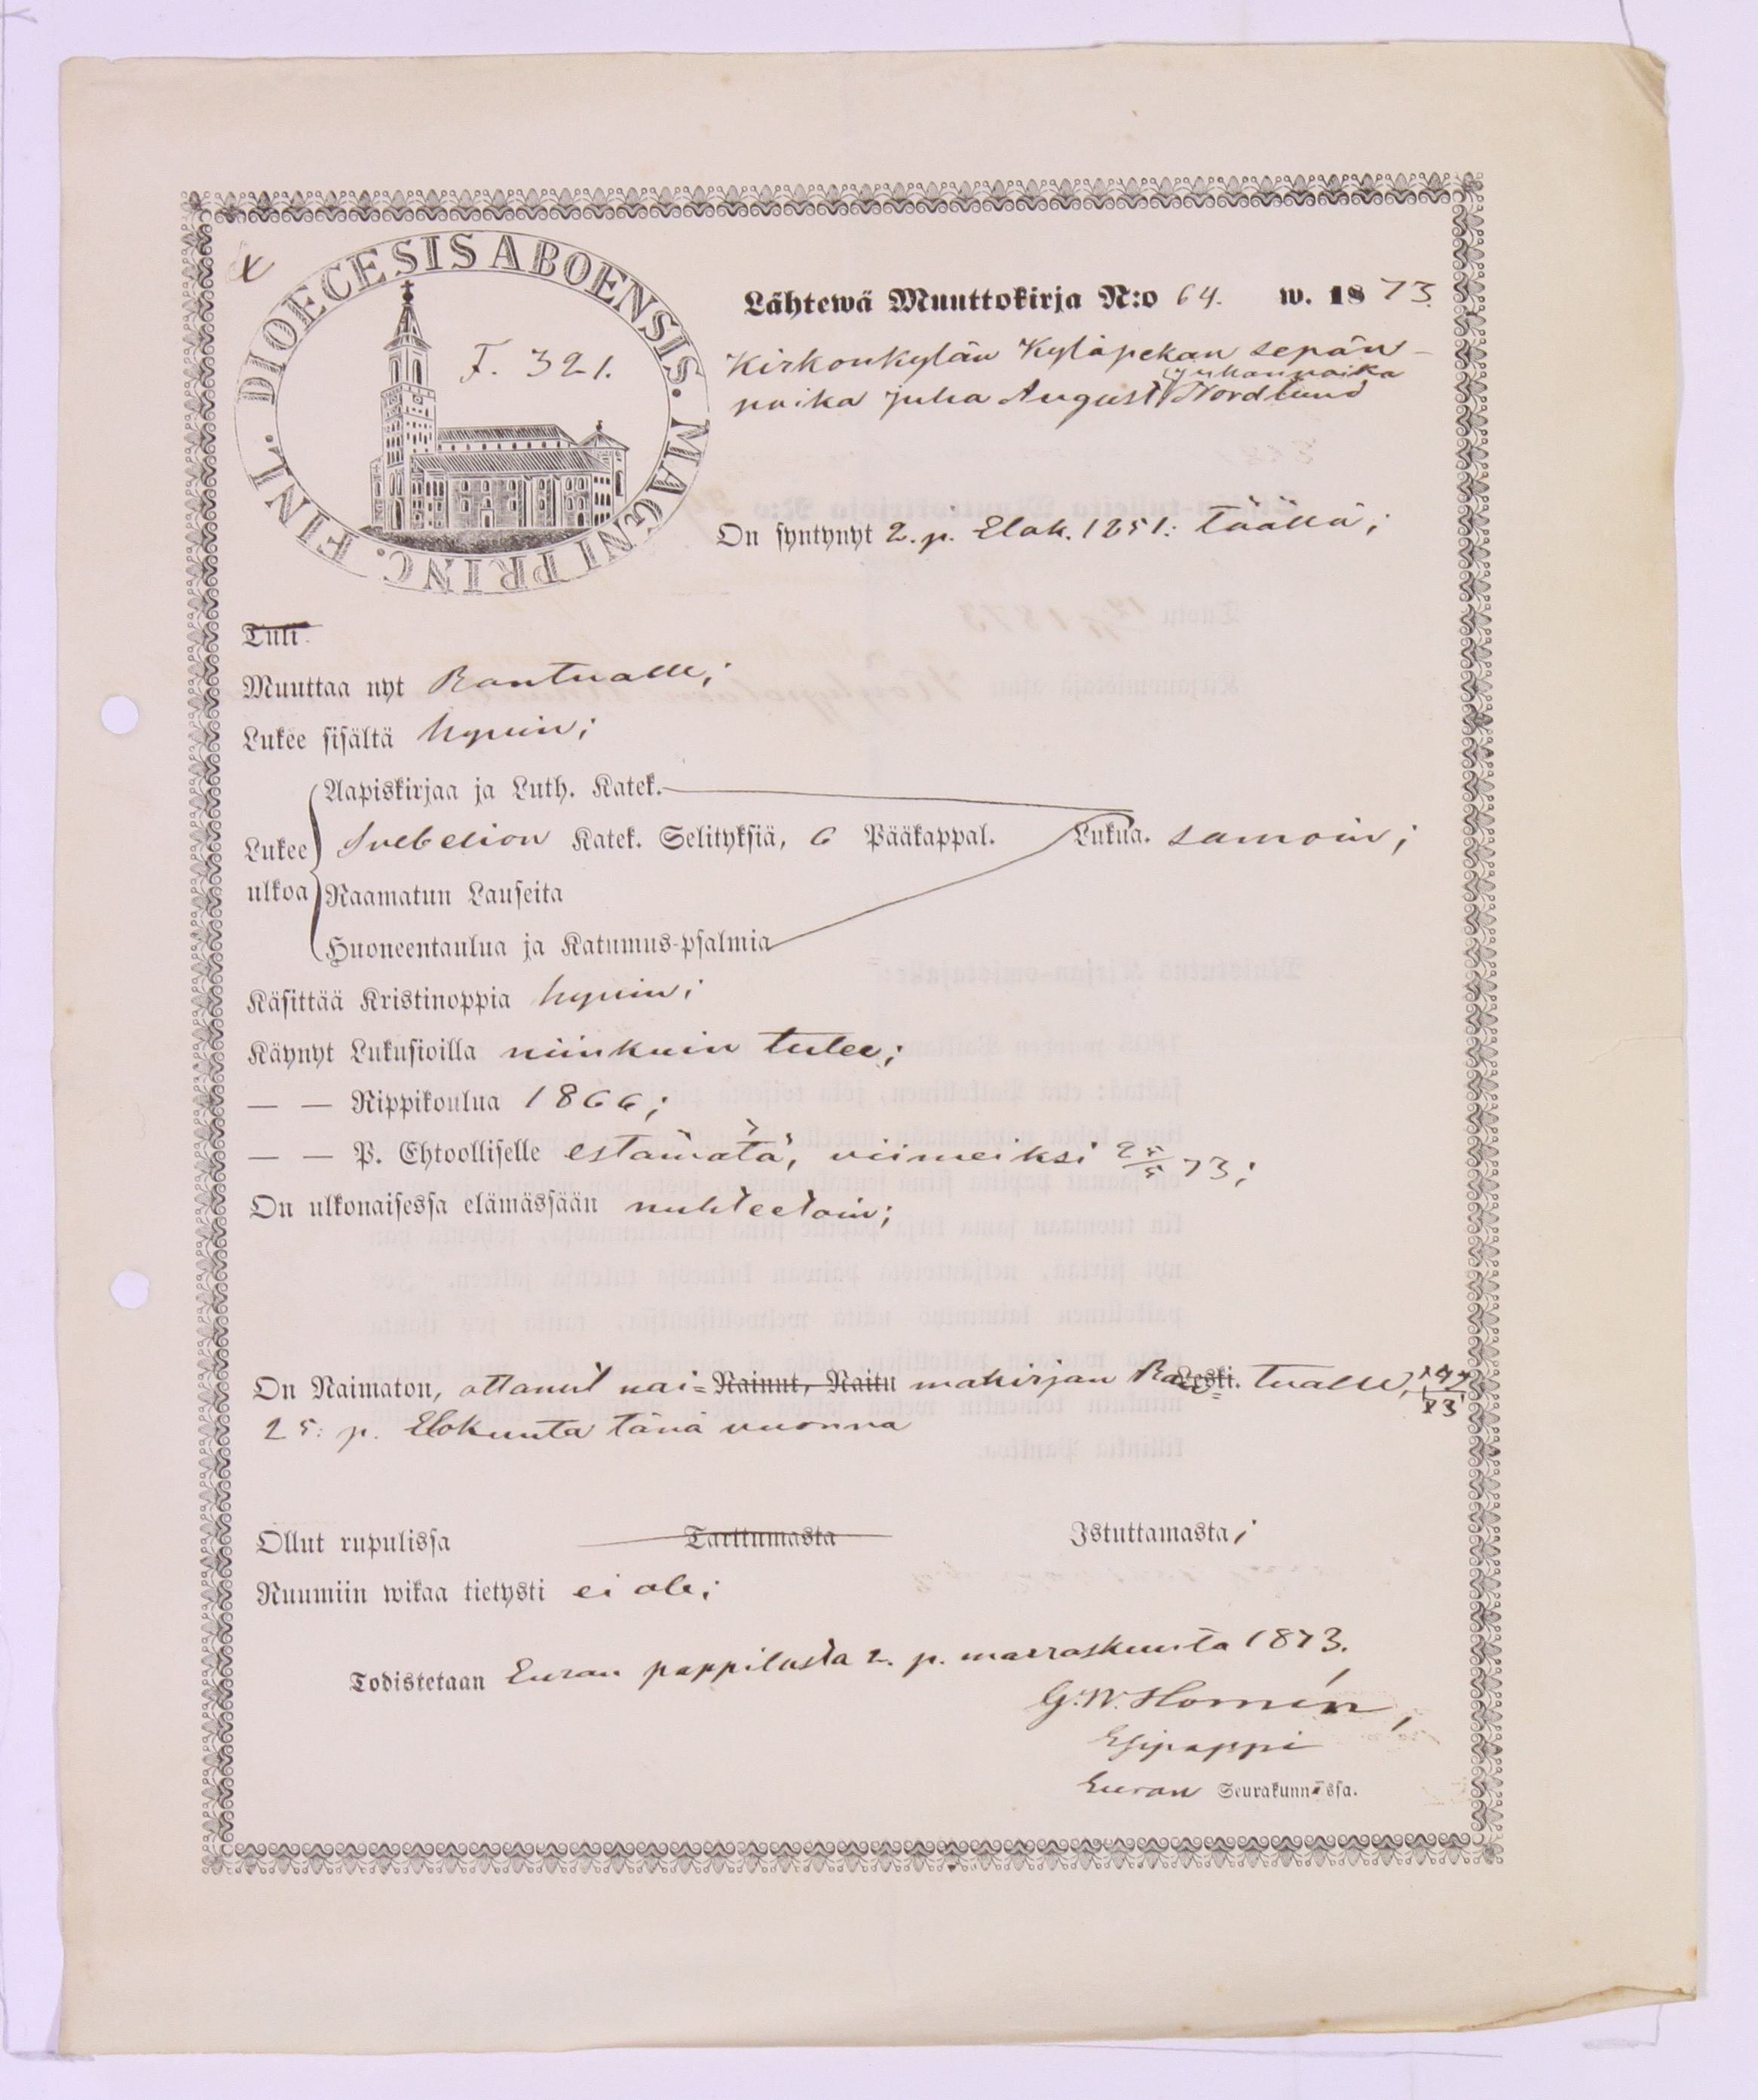 DIOECESIS ABOENSIS. MAGNI PRINC. FINL.
F. 321.
Lähtewä Muuttokirja N:o 64. w. 1873.
Kirkonkylän Kyläpekan sepän-
Juhanpoika
poika Juha August Nordlund
On syntynyt 2. p. Elok. 1851: täällä;
Tuli
Muuttaa nyt Rantualle;
Lukee sisältä hywin;
Aapiskirjaa ja Luth. Katek.
Lukee Svebelion Katek. Selityksiä, 6 Pääkappal. Lukua. samoin;
ulkoa Raamatun Lauseita
Huoneentaulua ja Katumus-psalmia
Käsittää Kristinoppia hywin;
Käynyt Lukusioilla niinkuin tulee;
— — Rippikoulua 1866;
— — P. Ehtoolliselle estämätä, viimeiksi 25/5 73;
On ulkonaisessa elämässään nuhteetoin;
On Naimaton, ottanut nai= Nainut, Naitu makirjan Ran= Leski. tualle,
25: p. Elokuuta tänä vuonna
Ollut rupulissa Tarttumasta Istuttamasta;
Ruumiin wikaa tietysti ei ole;
Todistetaan Euran pappilasta 2. p. marraskuuta 1873.
G. W. Homén,
Esipappi
Euran Seurakunnassa.